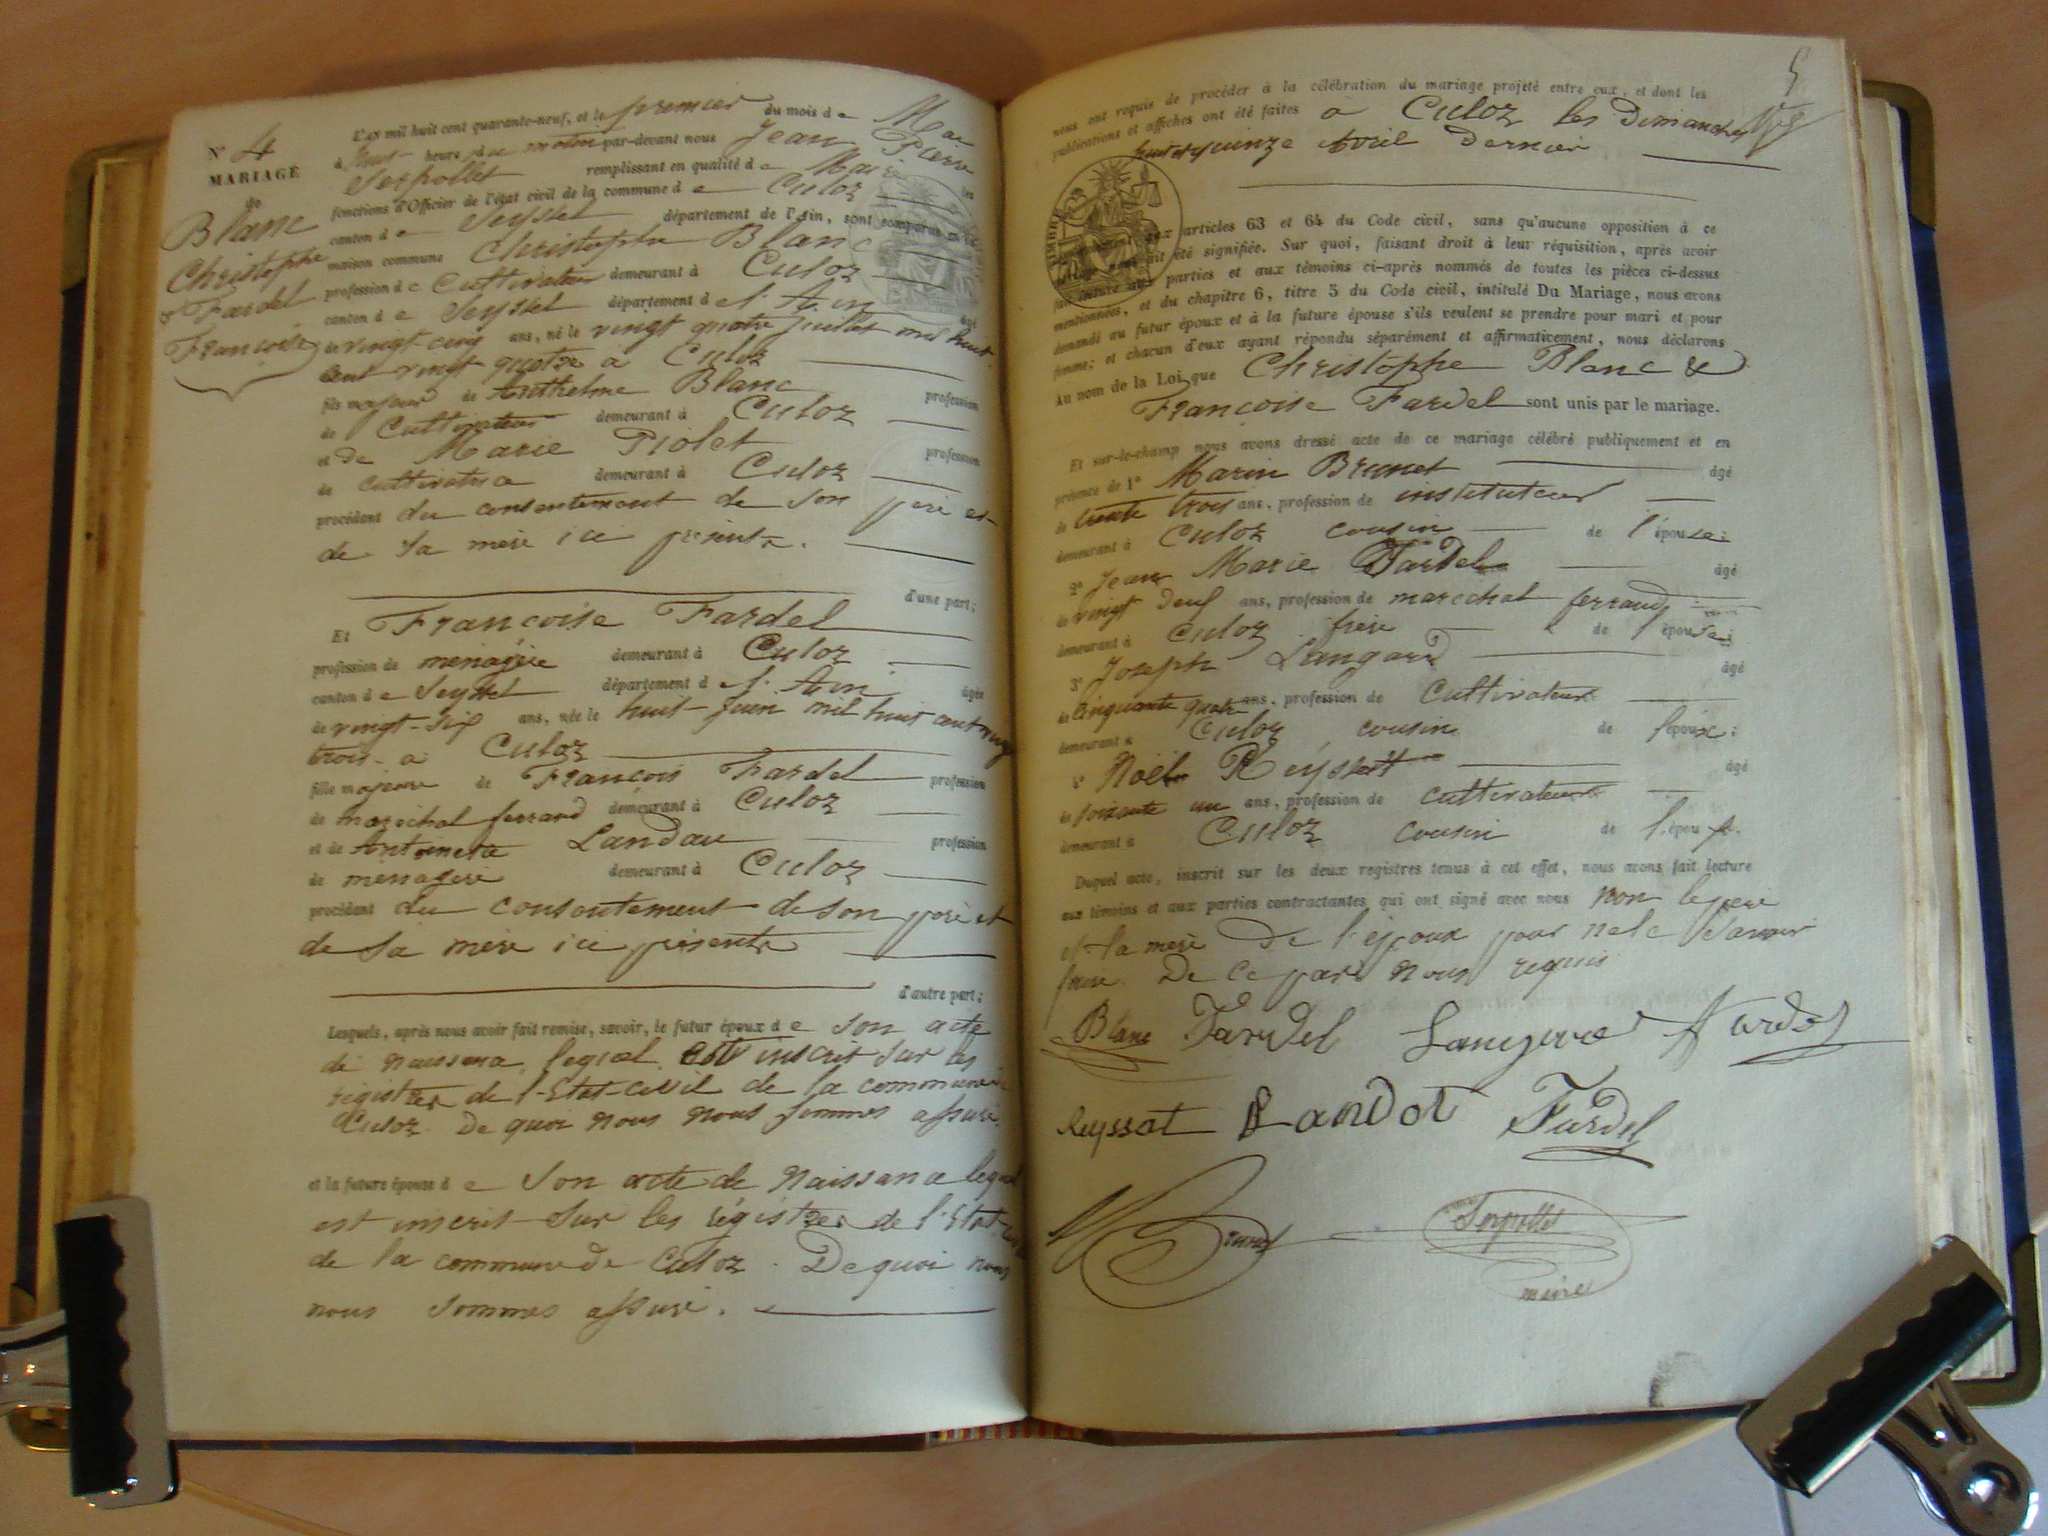 N° 4
MARIAGE
de
Blanc
Christophe
& Fardel
Françoise
L'an mil huit cent quarante-neuf, et le premier du mois de Mai
à heures du matin par-devant nous Jean Pierre
Serpollet remplissant en qualité de Maire les
fonctions d'Officier de l'état civil de la commune de Culoz
canton de Seyssel département de l'Ain, sont comparus en la
maison commune Christophe Blanc
profession de Cultivateur demeurant à Culoz
canton de Seyssel département de l'Ain âgé
de vingt cinq ans, né le vingt quatre juillet mil huit
cent vingt quatre à Culoz
fils majeur de Anthelme Blanc profession
de Cultivateur demeurant à Culoz
et de Marie Piolet profession
de cultivatrice demeurant à Culoz
procédant du consentement de son père et
de sa mère ici présents.
d'une part;
Et Françoise Fardel
profession de ménagère demeurant à Culoz
canton de Seyssel département de l'Ain âgée
de vingt-six ans, née le huit juin mil huit cent vingt
trois à Culoz
fille majeure de François Fardel profession
de maréchal ferrand demeurant à Culoz
et de Antoinette Landau profession
de ménagère demeurant à Culoz
procédant du consentement de son père et
de sa mère ici présents
d'autre part;
Lesquels, après nous avoir fait remise, savoir, le futur époux de son acte
de naissance, lequel est inscrit sur les
registres de l'Etat-civil de la commune de
Culoz. De quoi nous nous sommes assuré.
et la future épouse de son acte de naissance lequel
est inscrit sur les régistres de l'Etat-civil
de la commune de Culoz. De quoi nous
nous sommes assuré.
5
nous ont requis de procéder à la célébration du mariage projeté entre eux, et dont les
publications et affiches ont été faites à Culoz les Dimanches
huit et quinze Avril Dernier
TIMBRE
aux articles 63 et 64 du Code civil, sans qu'aucune opposition à ce
mariage nous ait été signifiée. Sur quoi, faisant droit à leur réquisition, après avoir
fait lecture aux parties et aux témoins ci-après nommés de toutes les pièces ci-dessus
mentionnées, et du chapitre 6, titre 5 du Code civil, intitulé Du Mariage, nous avons
demandé au futur époux et à la future épouse s'ils veulent se prendre pour mari et pour
femme; et chacun d'eux ayant répondu séparément et affirmativement, nous déclarons
Au nom de la Loi que Christophe Blanc &
Françoise Fardel sont unis par le mariage.
Et sur-le-champ nous avons dressé acte de ce mariage célébré publiquement et en
présence de 1° Marin Brunet âgé
de trente trois ans, profession de instituteur
demeurant à Culoz cousin de l'épouse;
2° Jean Marie Fardel âgé
de vingt deux ans, profession de maréchal ferrand
demeurant à Culoz frère de l'épouse;
3° Joseph Langard âgé
de Cinquante quatre ans, profession de Cultivateur
demeurant à Culoz cousin de l'époux;
4° Noël Reyssat âgé
de soixante un ans, profession de cultivateur
demeurant à Culoz cousin de l'époux.
Duquel acte, inscrit sur les deux registres tenus à cet effet, nous avons fait lecture
aux témoins et aux parties contractantes qui ont signé avec nous non le père
et la mère de l'époux pour ne le savoir
faire. De ce par nous requis
Blanc Fardel Fardel
Reyssat Landot Fardel
M Brunet Serpollet
maire